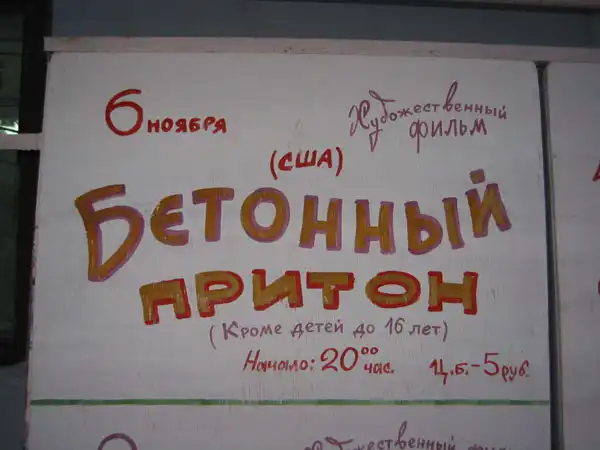 6 НОЯБРЯ Художественный
фильм
(США)
БЕТОННЫЙ
ПРИТОН
(Кроме детей до 16 лет)
Начало: 20 00 час. Ц.Б.-5 руб.